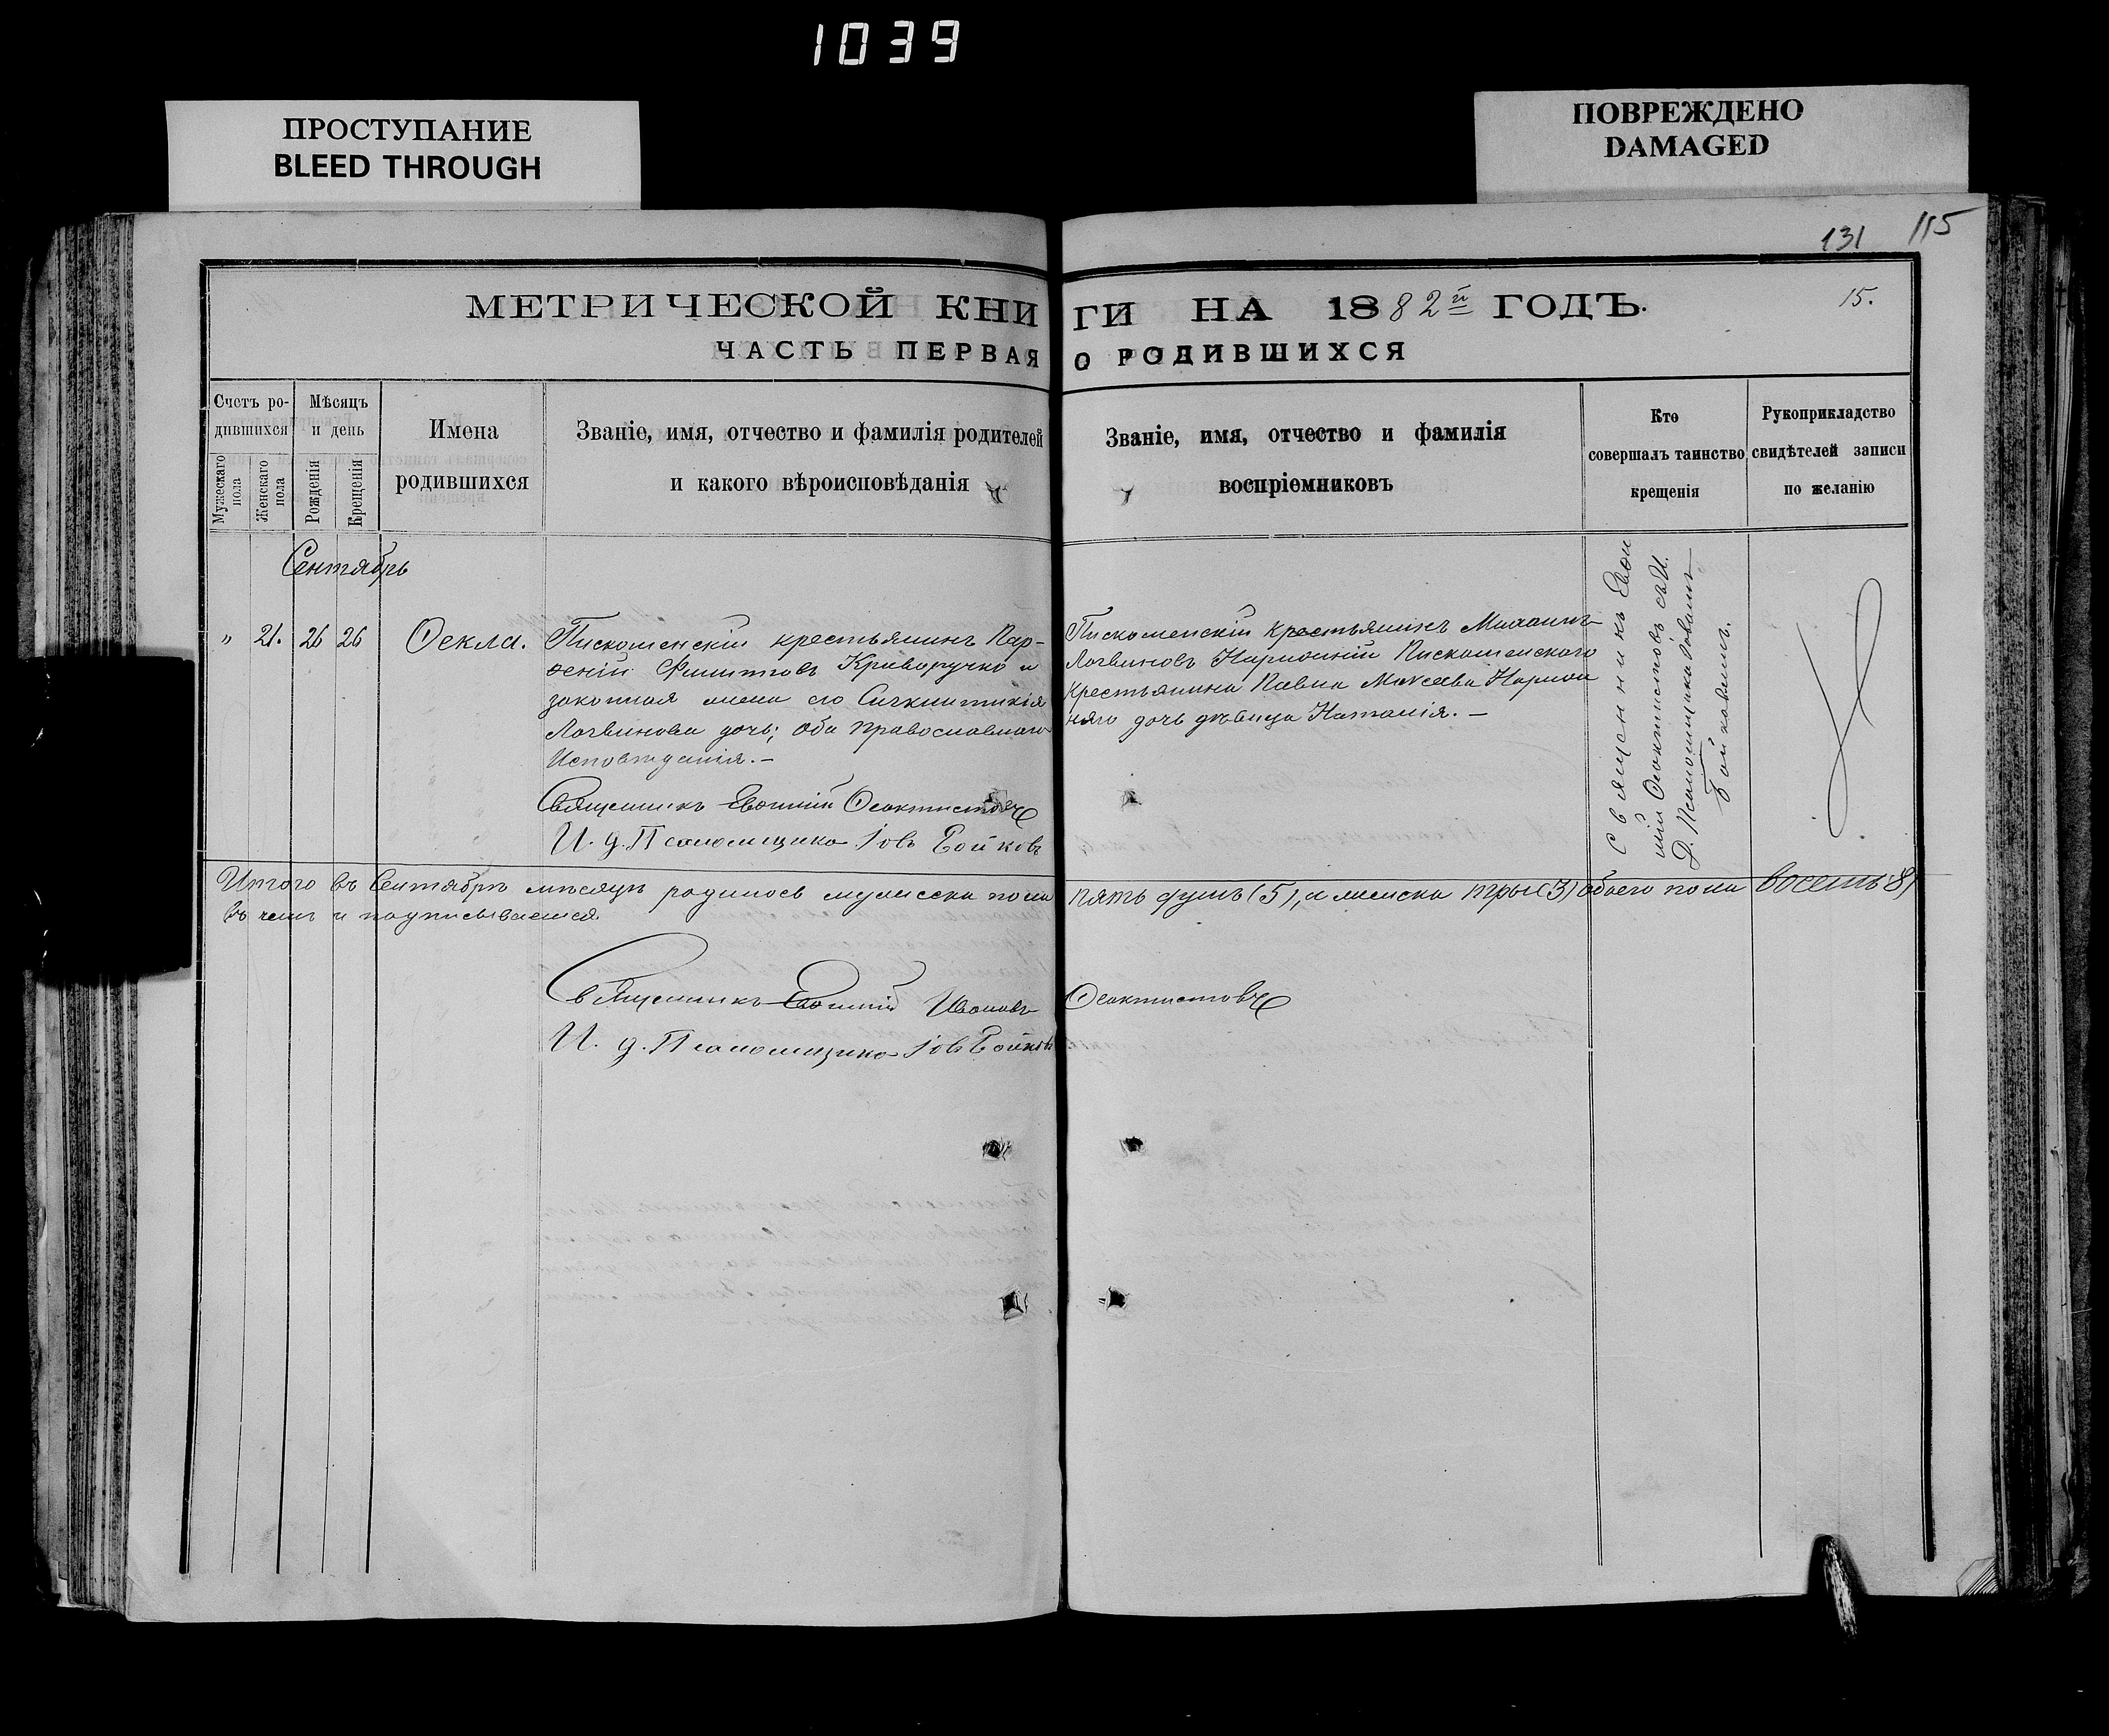 1039
ПРОСТУПАНИЕ
BLEED THROUGH
ПОВРЕЖДЕНО
DAMAGED
131 115
МЕТРИЧЕСКОЙ КНИГИ НА 1882й ГОДЪ.
15.
ЧАСТЬ ПЕРВАЯ О РОДИВШИХСЯ
Счетъ ро-
дившихся
Мужескаго пола
Женскаго пола
Мѣсяцъ
и день
Рожденія
Крещенія
Имена
родившихся
Званіе, имя, отчество и фамилія родителей
и какого вѣроисповѣданія
Званіе, имя, отчество и фамилія
воспріемниковъ
Кто
совершалъ таинство
крещенія
Рукоприкладство
свидѣтелей записи
по желанію
Сентябрь
" 21. 26 26 Ѳекла.
Пискошенскій крестьянинъ Пар-
ѳеній Филиповъ Криворучко и
законная жена его Синклитикія
Логвинова дочь; оба православнаго
Исповѣданія.-
Священникъ Евѳимій Ѳеоктистовъ
И. д. Псаломщика Іовъ Бойковъ
Пискошенскій крестьянинъ Михаилъ
Логвиновъ Пискошенскаго
крестьянина Павла
дочь дѣвица Наталія.-
Священникъ Евѳи
мій Ѳеоктистовъ съ И.
Д. Псаломщикадовымъ
Бойковымъ.
Итого въ Сентябрѣ мѣсяцѣ родилось мужеска пола пять душъ (5), а женска три (3) обоего пола восемь 8)
въ чемъ и подписываемся
Священникъ Евѳимій Ивановъ Ѳеоктистовъ
И. д. Псаломщика Іовъ Бойковъ